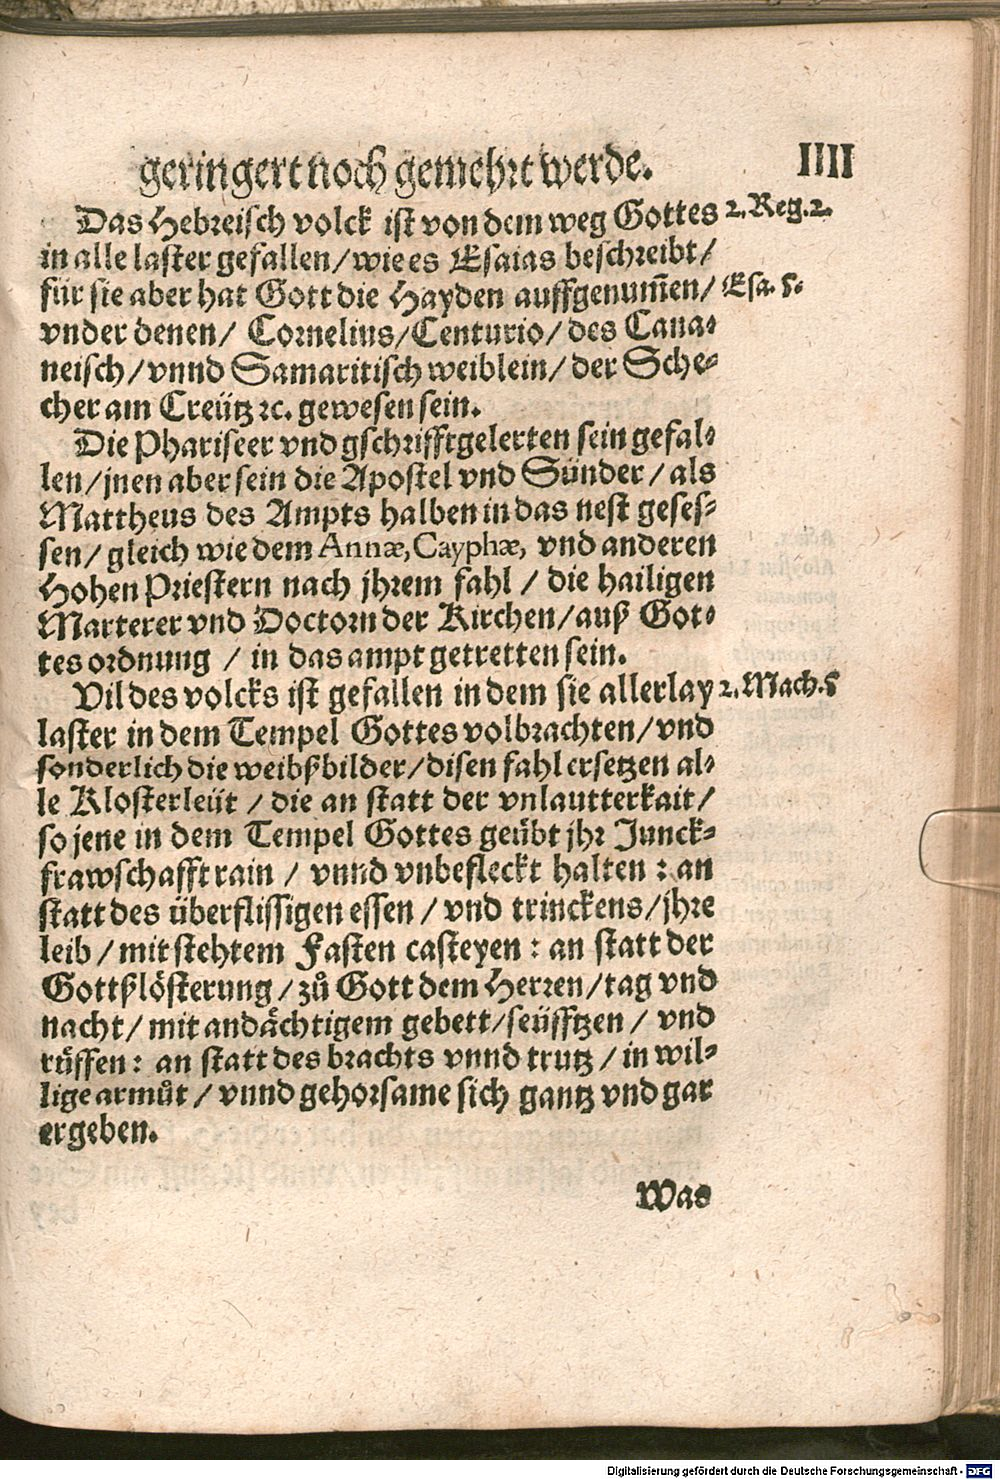 geringert noch gemehrt werde. IIII
Das Hebreisch volck ist von dem weg Gottes 2. Reg. 2.
in alle laster gefallen/ wie es Esaias beschreibt/
für sie aber hat Gott die Hayden auffgenum̃en/ Esa. 5.
vnder denen/ Cornelius/ Centurio/ des Cana-
neisch/ vnnd Samaritisch weiblein/ der Sche-
cher am Creütz ꝛc. gewesen sein.
Die Phariseer vnd gschrifftgelerten sein gefal-
len/ jnen aber sein die Apostel vnd Sünder/ als
Mattheus des Ampts halben in das nest geses-
sen/ gleich wie dem Annæ, Cayphæ, vnd anderen
Hohen Priestern nach jhrem fahl/ die hailigen
Marterer vnd Doctorn der Kirchen/ auß Got-
tes ordnung/ in das ampt getretten sein.
Vil des volcks ist gefallen in dem sie allerlay 2. Mach. 5
laster in dem Tempel Gottes volbrachten/ vnd
sonderlich die weibßbilder/ disen fahl ersetzen al-
le Klosterleüt/ die an statt der vnlautterkait/
so jene in dem Tempel Gottes geübt jhr Junck-
frawschafft rain/ vnnd vnbefleckt halten: an
statt des überflissigen essen/ vnd trinckens/ jhre
leib/ mit stehtem Fasten casteyen: an statt der
Gottßlösterung/ zů Gott dem Herren/ tag vnd
nacht/ mit andächtigem gebett/ seüfftzen/ vnd
rüffen: an statt des brachts vnnd trutz/ in wil-
lige armůt/ vnnd gehorsame sich gantz vnd gar
ergeben.
Was
Digitalisierung gefördert durch die Deutsche Forschungsgemeinschaft - DFG